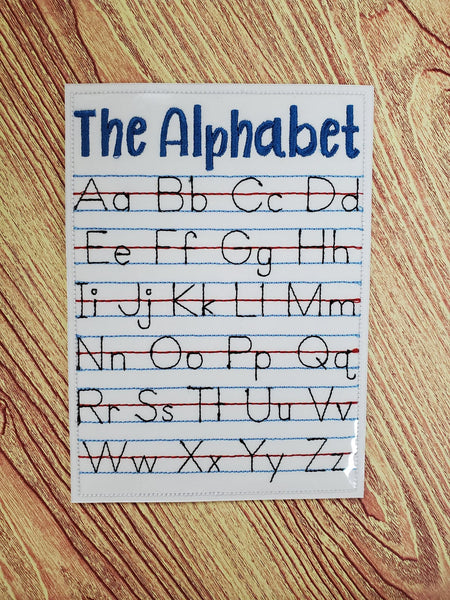 The Alphabet
Aa Bb Cc Dd
Ee Ff Gg Hh
Ii Jj Kk Ll Mm
Nn Oo Pp Qq
Rr Ss Tt Uu Vv
Ww Xx Yy Zz